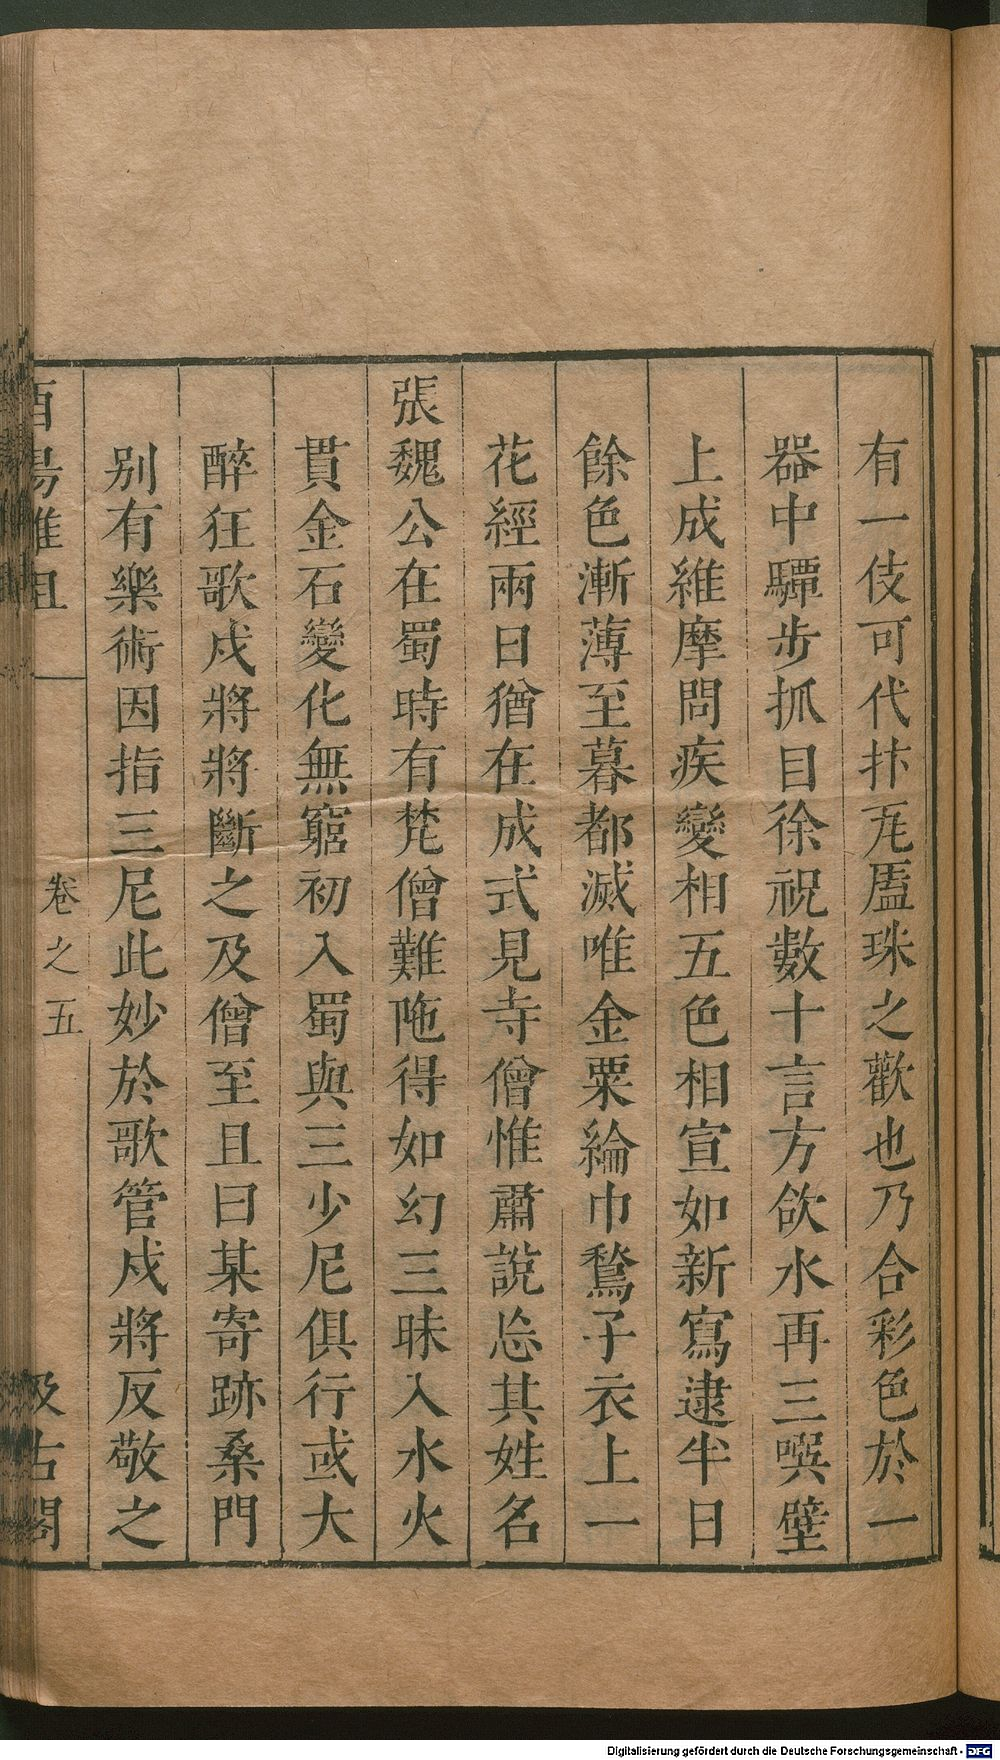 有一伎可代抃瓦廅珠之歡也乃合彩色於一
器中驔步抓目徐祝數十言方欱水再三噀壁
上成維摩問疾變相五色相宣如新寫逮半日
餘色漸薄至暮都滅唯金粟綸巾鶖子衣上一
花經兩日猶在成式見寺僧惟肅說忩其姓名
張魏公在蜀時有梵僧難陁得如幻三昧入水火
貫金石變化無窮初入蜀與三少尼俱行或大
醉狂歌戍將將斷之及僧至且曰某寄跡桑門
别有樂術因指三尼此妙於歌管戍將反敬之
酉昜雜俎
卷之五
汲古閣
Digitalisierung gefördert durch die Deutsche Forschungsgemeinschaft - DFG